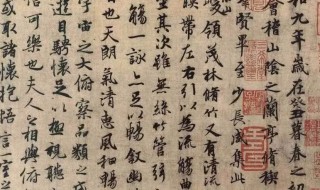 和九年歲在癸丑暮春之初
會稽山陰之蘭亭脩稧
賢畢至少長咸集此
峻領茂林脩竹又有清流
帶左右引以為流觴曲
坐其次雖無絲竹管弦
觴一詠亦足以暢敘幽
也天朗氣清惠風和暢
宇宙之大俯察品類之盛
遊目騁懷足以極視聽
信可樂也夫人之相與俯
或取諸懷抱悟言一室之